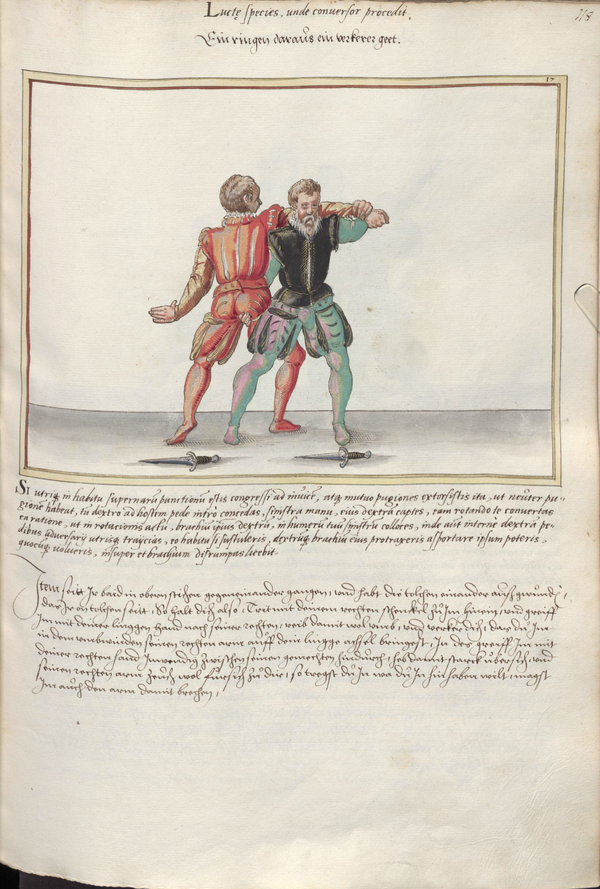 Luctę species, unde conversor procedit.
Ein ringen daraus ein verkerer geet.
17
Si utriq; in habitu supernaru punctionu estis congressi ad invice, atq; mutuo pugiones extorsistis ita, ut neuter pu-
gione habeat, tu dextro ad hostem pede intro concedas, sinistra manu, eius dextra captes, eam rotando te convertas
ea ratione, ut in rotacionis actu, brachiu ipsius dextru, in humeru tuu sinistru colloces, inde aut interne dextra pe-
dibus adversarii utrisq; traiicias, eo habitu si sustuleris, dextruq; brachiu eius protraxeris asportare ipsum poteris,
quocuq; volveris, insuper et brachium disrumpas licebit.
Item seit Ir baid in obern stichen gegeneinander gangen, und habt die tolchen einander auß gwunde,
das Ir on tolchen seitt, So halt dich also, Trit mit deinem rechten schenckel zu Im hinein, und greiff
Im mit deiner linggen hand nach seiner rechten, reib damit wol umb, und verker dich, das du Im
in dem umbwinden seinen rechten arm auff dein lingge achsl bringest, In des greiff Im mit
deiner rechten hand Inwendig zwischen seinen gemechten hindurch, heb damit starck ubersich, und
seinen rechten arm zeuch wol fur sich zu dir, so tregst du In wa du In hin haben wilt, magst
Im auch den arm damit brechen,